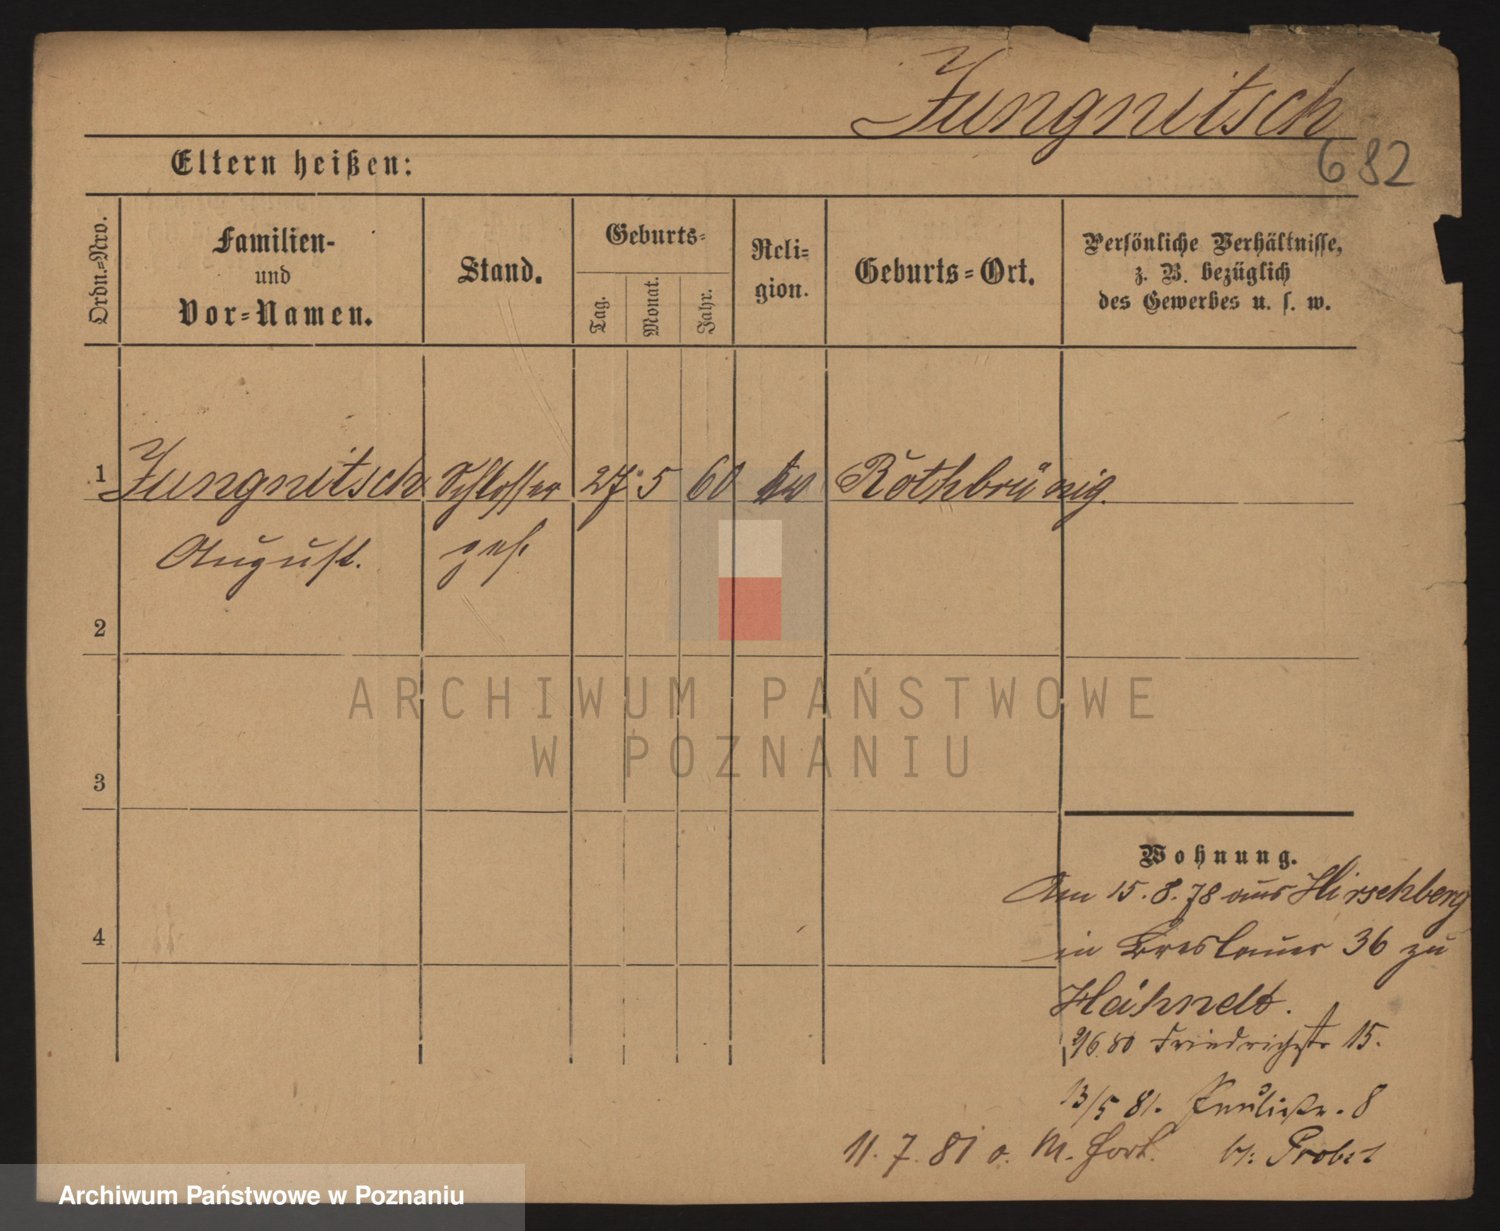 Jungnitsch
682
Eltern heißen:
Ordn.-Nro.
Familien-
und
Vor-Namen.
Stand.
Geburts-
Tag.
Monat.
Jahr.
Reli-
gion.
Geburts-Ort.
Persönliche Verhältnisse,
z. B. bezüglich
des Gewerbes u. s. w.
1 Jungnitsch Schlosser 27 5 60 Röthbrünig.
August. ges.
2
ARCHIWUM PAŃSTWOWE
W POZNANIU
3
Wohnung.
Am 15.8.78 aus Hirschberg
4
in Breslauer 36 zu
Hähnelt.
9/6 80 Friedrichstr 15.
13/5 81. Paulistr. 8
11. 7. 81 o. M. fort. bei Probst
Archiwum Państwowe w Poznaniu